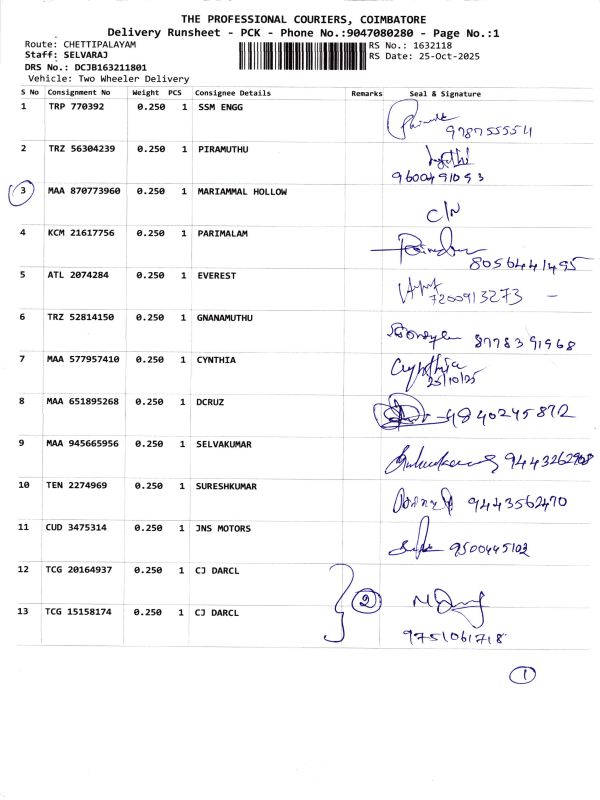 THE PROFESSIONAL COURIERS, COIMBATORE
Delivery Runsheet - PCK - Phone No.:9047080280 - Page No.:1
Route: CHETTIPALAYAM
Staff: SELVARAJ
DRS No.: DCJB163211801
Vehicle: Two Wheeler Delivery
RS No.: 1632118
RS Date: 25-Oct-2025
S No Consignment No Weight PCS Consignee Details Remarks Seal & Signature
1 TRP 770392 0.250 1 SSM ENGG
9787555541
2 TRZ 56304239 0.250 1 PIRAMUTHU
9600491093
3 MAA 870773960 0.250 1 MARIAMMAL HOLLOW
C/N
4 KCM 21617756 0.250 1 PARIMALAM
8056441495
5 ATL 2074284 0.250 1 EVEREST
7200913273 -
6 TRZ 52814150 0.250 1 GNANAMUTHU
8778391968
7 MAA 577957410 0.250 1 CYNTHIA
Cynthia
25/10/25
8 MAA 651895268 0.250 1 DCRUZ
9840245872
9 MAA 945665956 0.250 1 SELVAKUMAR
9443262908
10 TEN 2274969 0.250 1 SURESHKUMAR
9443562470
11 CUD 3475314 0.250 1 JNS MOTORS
9500445102
12 TCG 20164937 0.250 1 CJ DARCL
2
13 TCG 15158174 0.250 1 CJ DARCL
9751061718
1